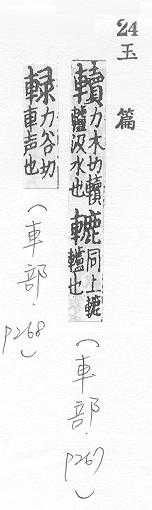 24
玉篇
力木切
轤汲水也
轆
同上轆
轤也
(車部.
p267)
力谷切
車声也
(車部.
p268)